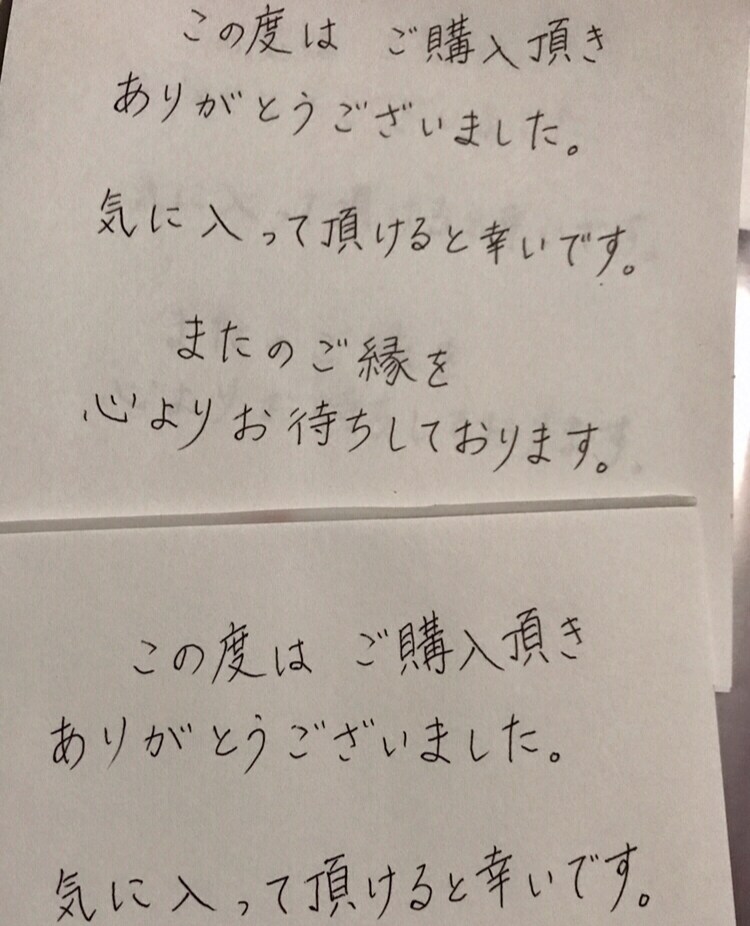 この度は ご購入頂き
ありがとうございました。
気に入って頂けると幸いです。
またのご縁を
心よりお待ちしております。
この度は ご購入頂き
ありがとうございました。
気に入って頂けると幸いです。